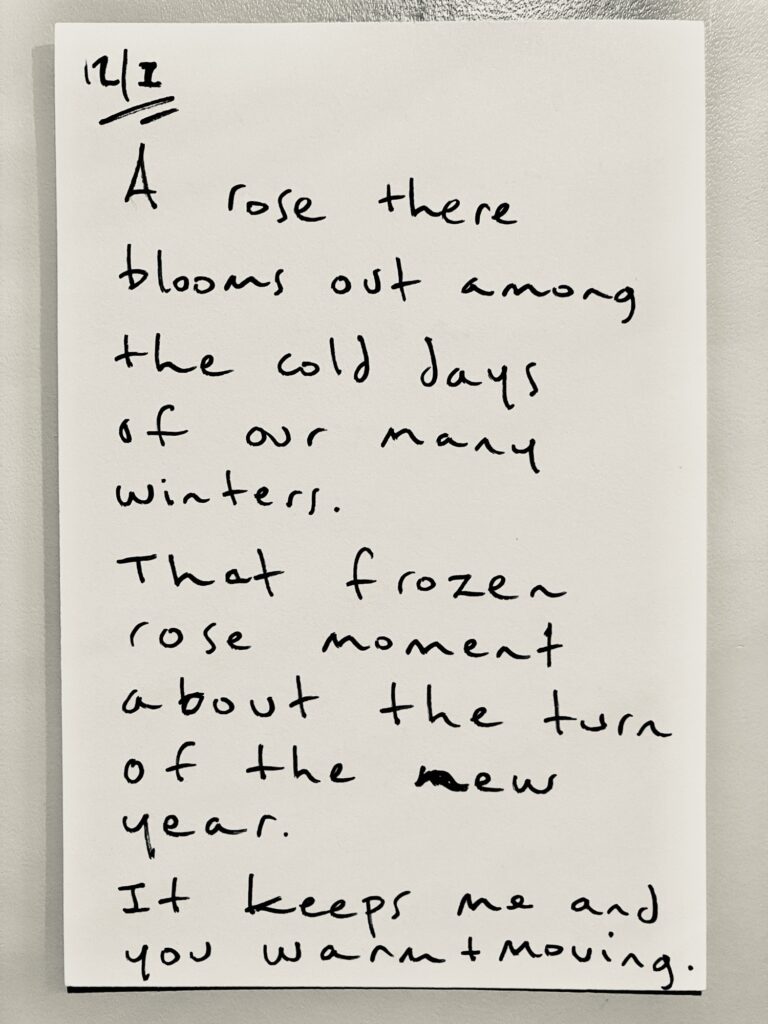 12/1
A rose there
blooms out among
the cold days
of our many
winters.
That frozen
rose moment
about the turn
of the new
year.
It keeps me and
you warm + moving.